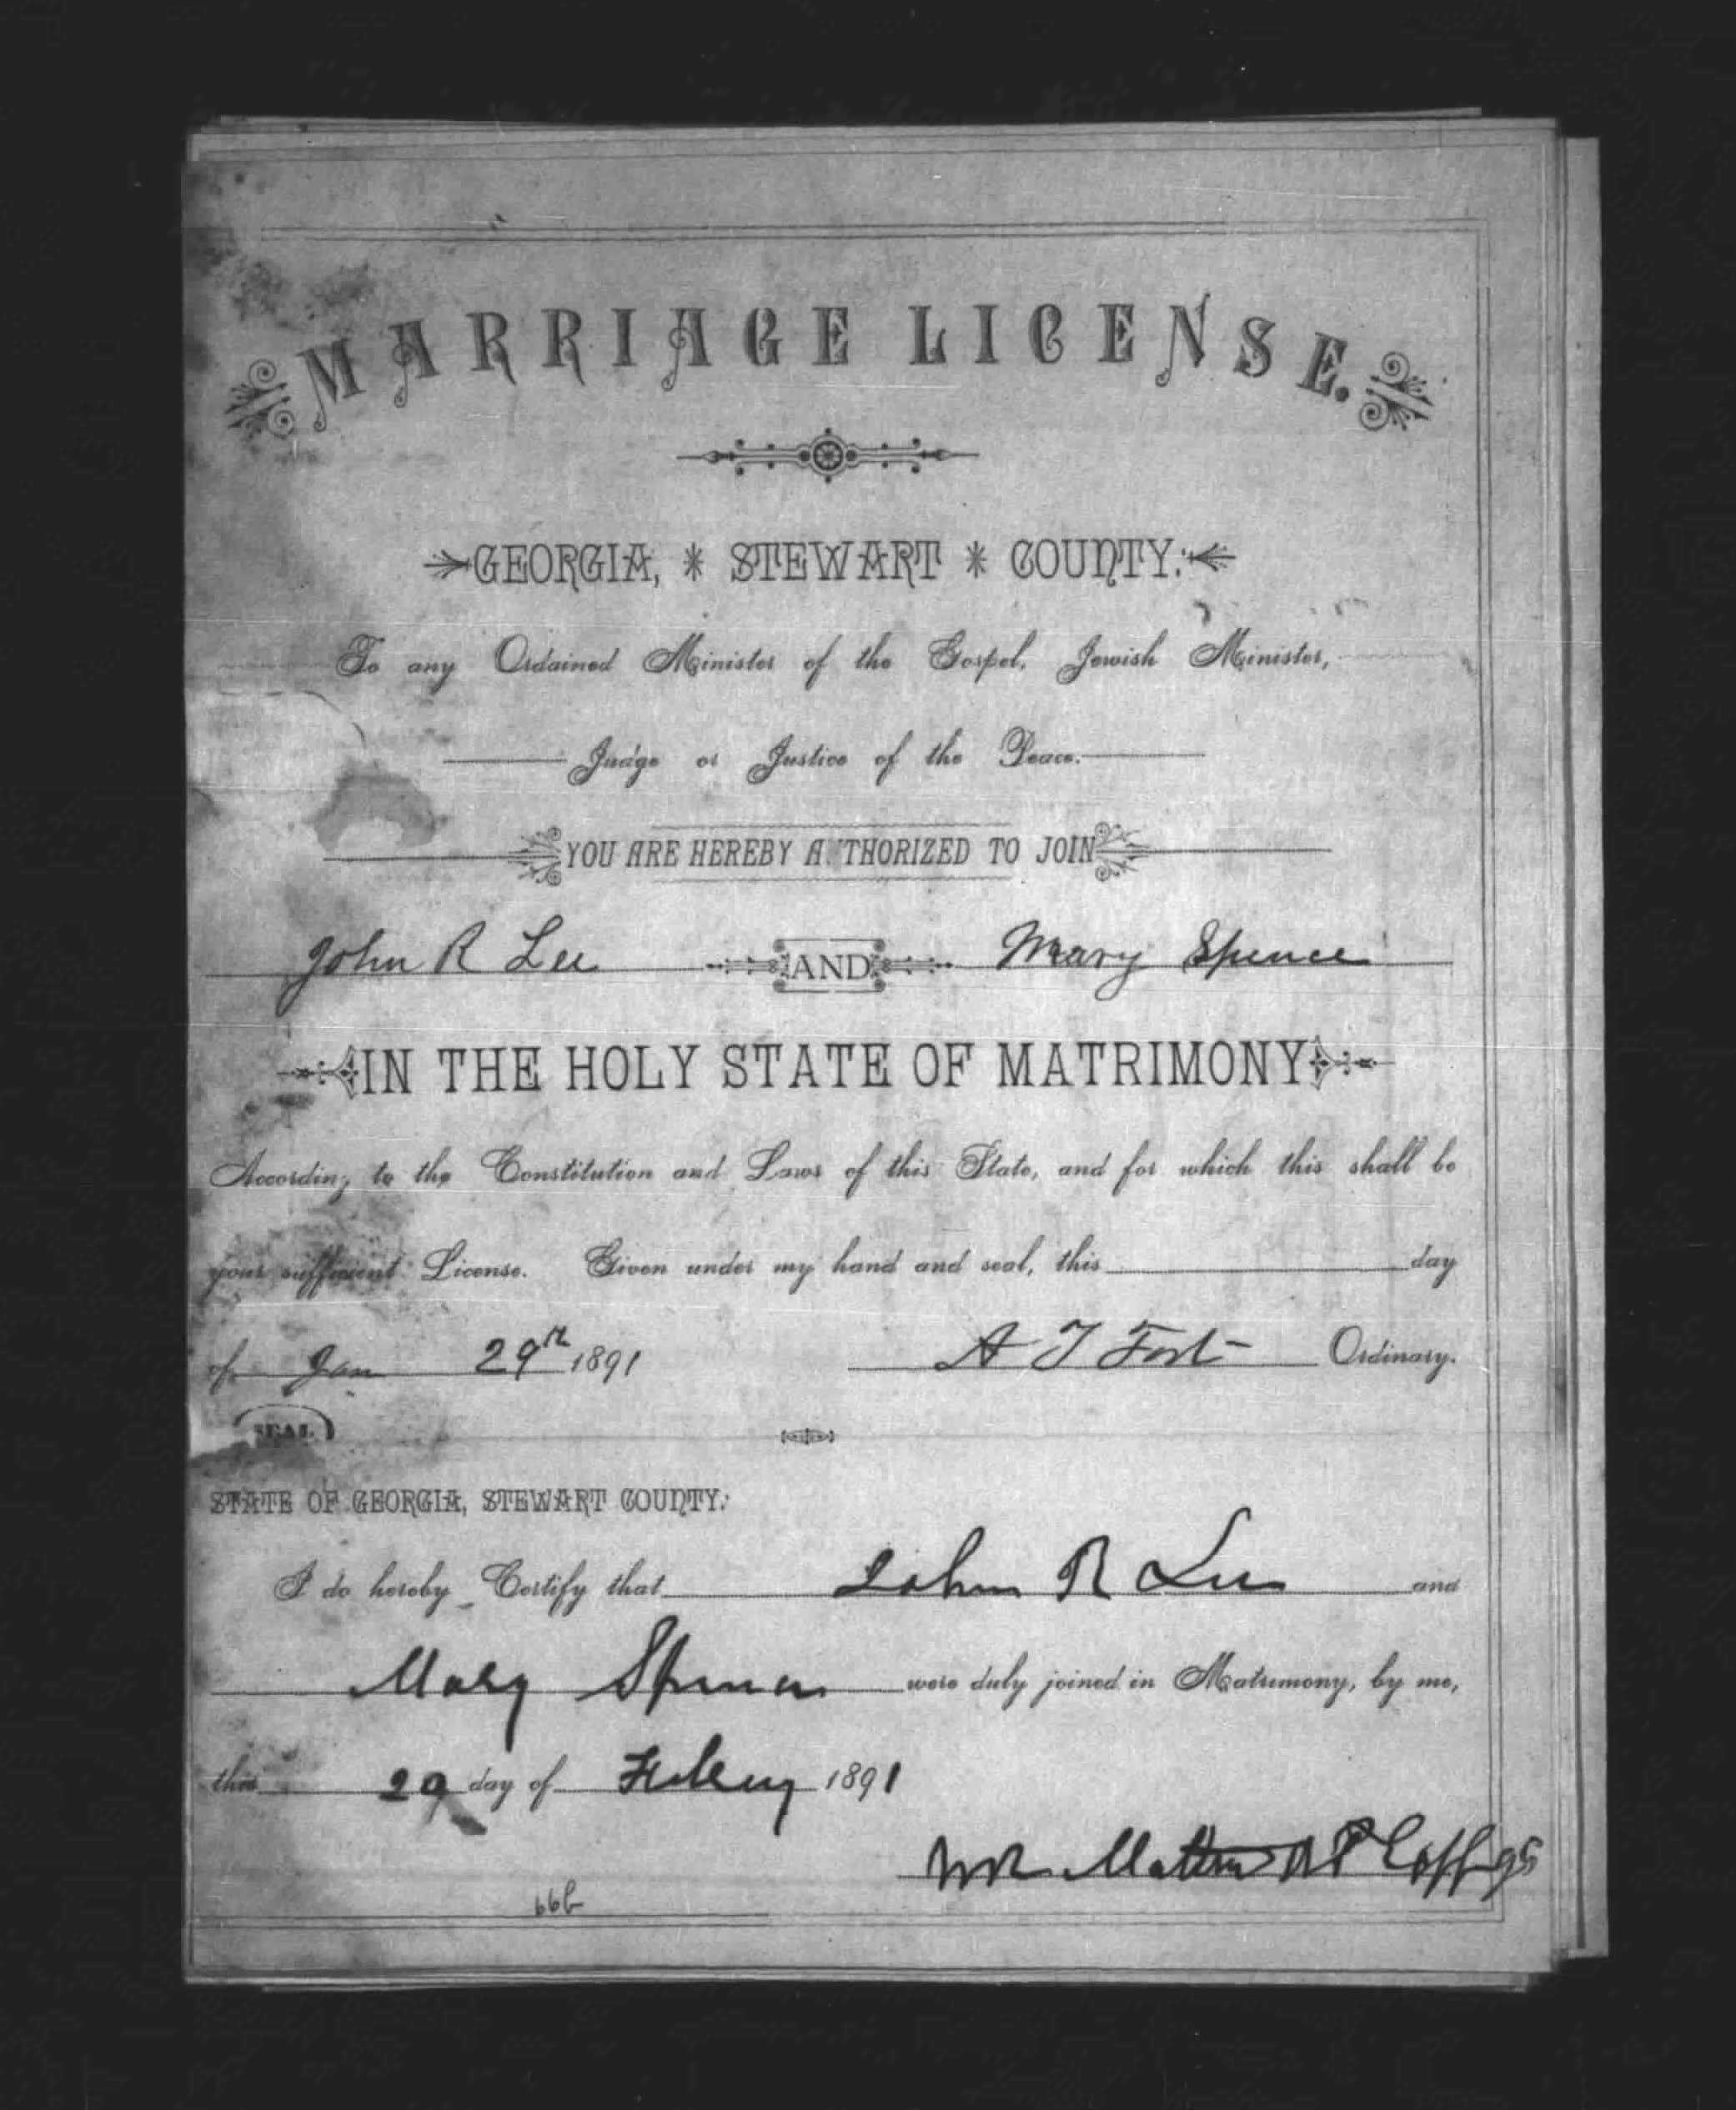 MARRIAGE LICENSE.
GEORGIA, * STEWART * COUNTY:
To any Ordained Minister of the Gospel, Jewish Minister,
Judge or Justice of the Peace.
YOU ARE HEREBY AUTHORIZED TO JOIN
John R Lee AND Mary Spence
IN THE HOLY STATE OF MATRIMONY
According to the Constitution and Laws of this State, and for which this shall be
your sufficient License. Given under my hand and seal, this day
of Jan 29th 1891 A T Fort Ordinary.
SEAL
STATE OF GEORGIA, STEWART COUNTY:
I do hereby Certify that John R Lee and
Mary Spence were duly joined in Matrimony, by me,
this 29 day of 1891
66b